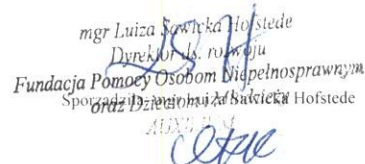 mgr Luiza Sawicka Hofstede
Dyrektor ds. rozwoju
Fundacja Pomocy Osobom Niepełnosprawnym
oraz Dzieciom i
Sporządziła: mgr Luiza Sawicka Hofstede